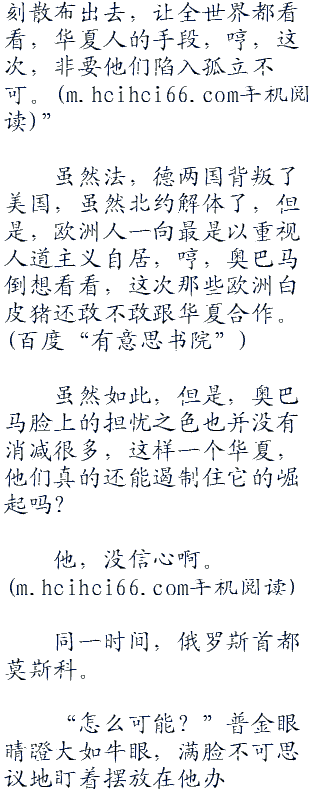 刻散布出去，让全世界都看
看，华夏人的手段，哼，这
次，非要他们陷入孤立不
可。(m.hcihci66.com手机阅
读)”
虽然法，德两国背叛了
美国，虽然北约解体了，但
是，欧洲人一向最是以重视
人道主义自居，哼，奥巴马
倒想看看，这次那些欧洲白
皮猪还敢不敢跟华夏合作。
(百度“有意思书院”)
虽然如此，但是，奥巴
马脸上的担忧之色也并没有
消减很多，这样一个华夏，
他们真的还能遏制住它的崛
起吗?
他，没信心啊。
(m.hcihci66.com手机阅读)
同一时间，俄罗斯首都
莫斯科。
“怎么可能?”普金眼
睛瞪大如牛眼，满脸不可思
议地盯着摆放在他办